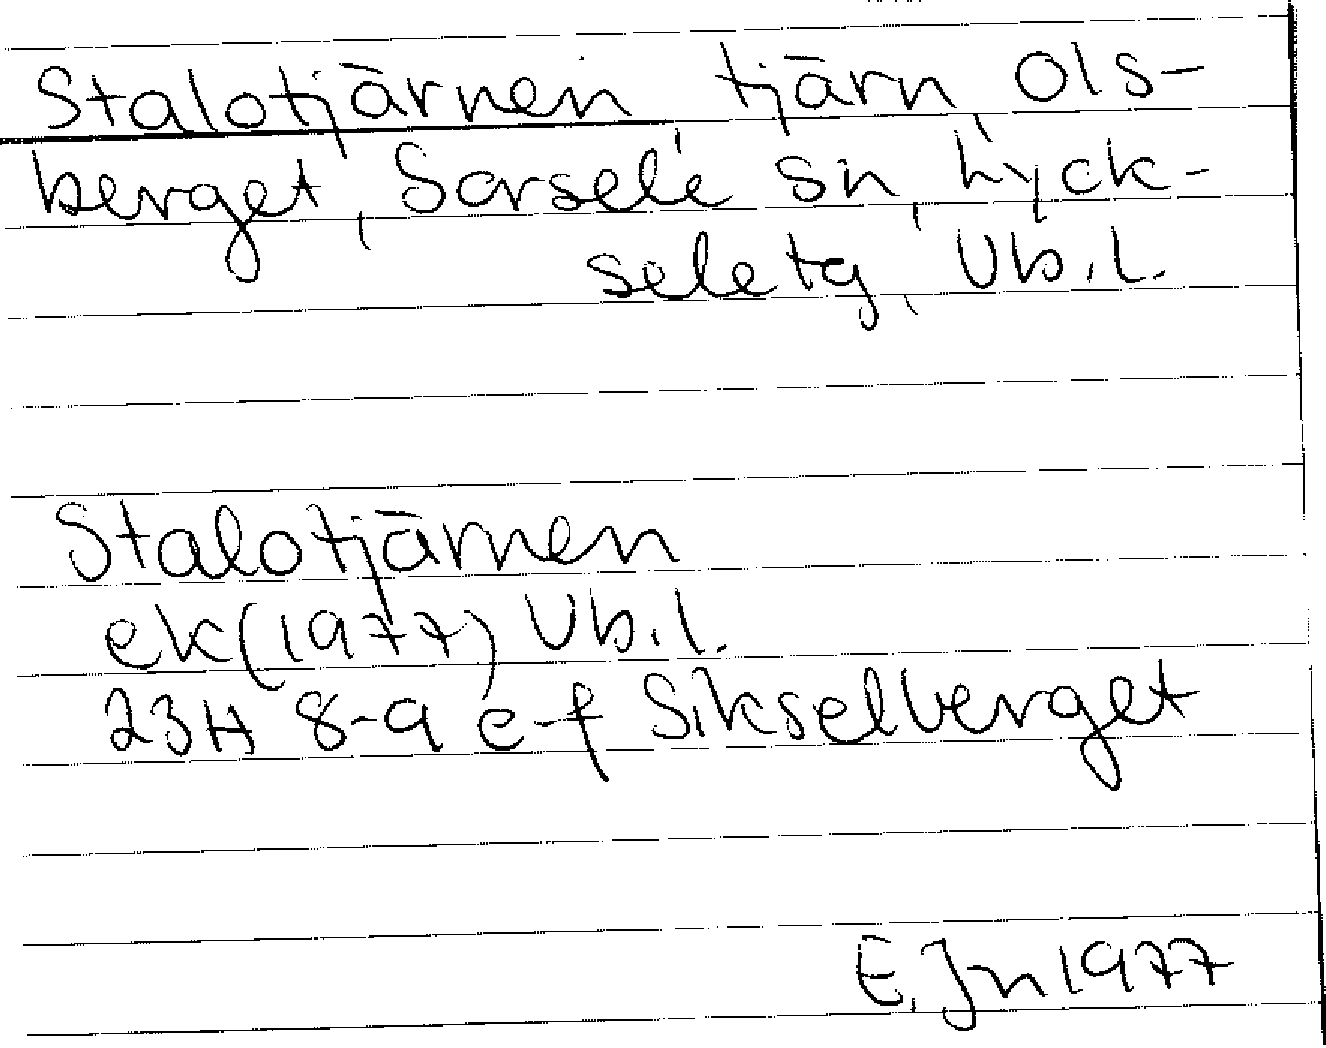 Stalotjärnen tjärn Ols-
berget, Sorsele sn, Lyck-
sele tg, Vb.l.
Stalotjärnen
ek(1977) Vb.l.
23H 8-9 e-f Sikselberget
E.Jn 1977